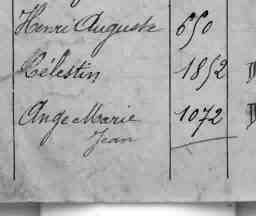 Henri Auguste 650
Célestin 1852
Ange Marie 1072
Jean